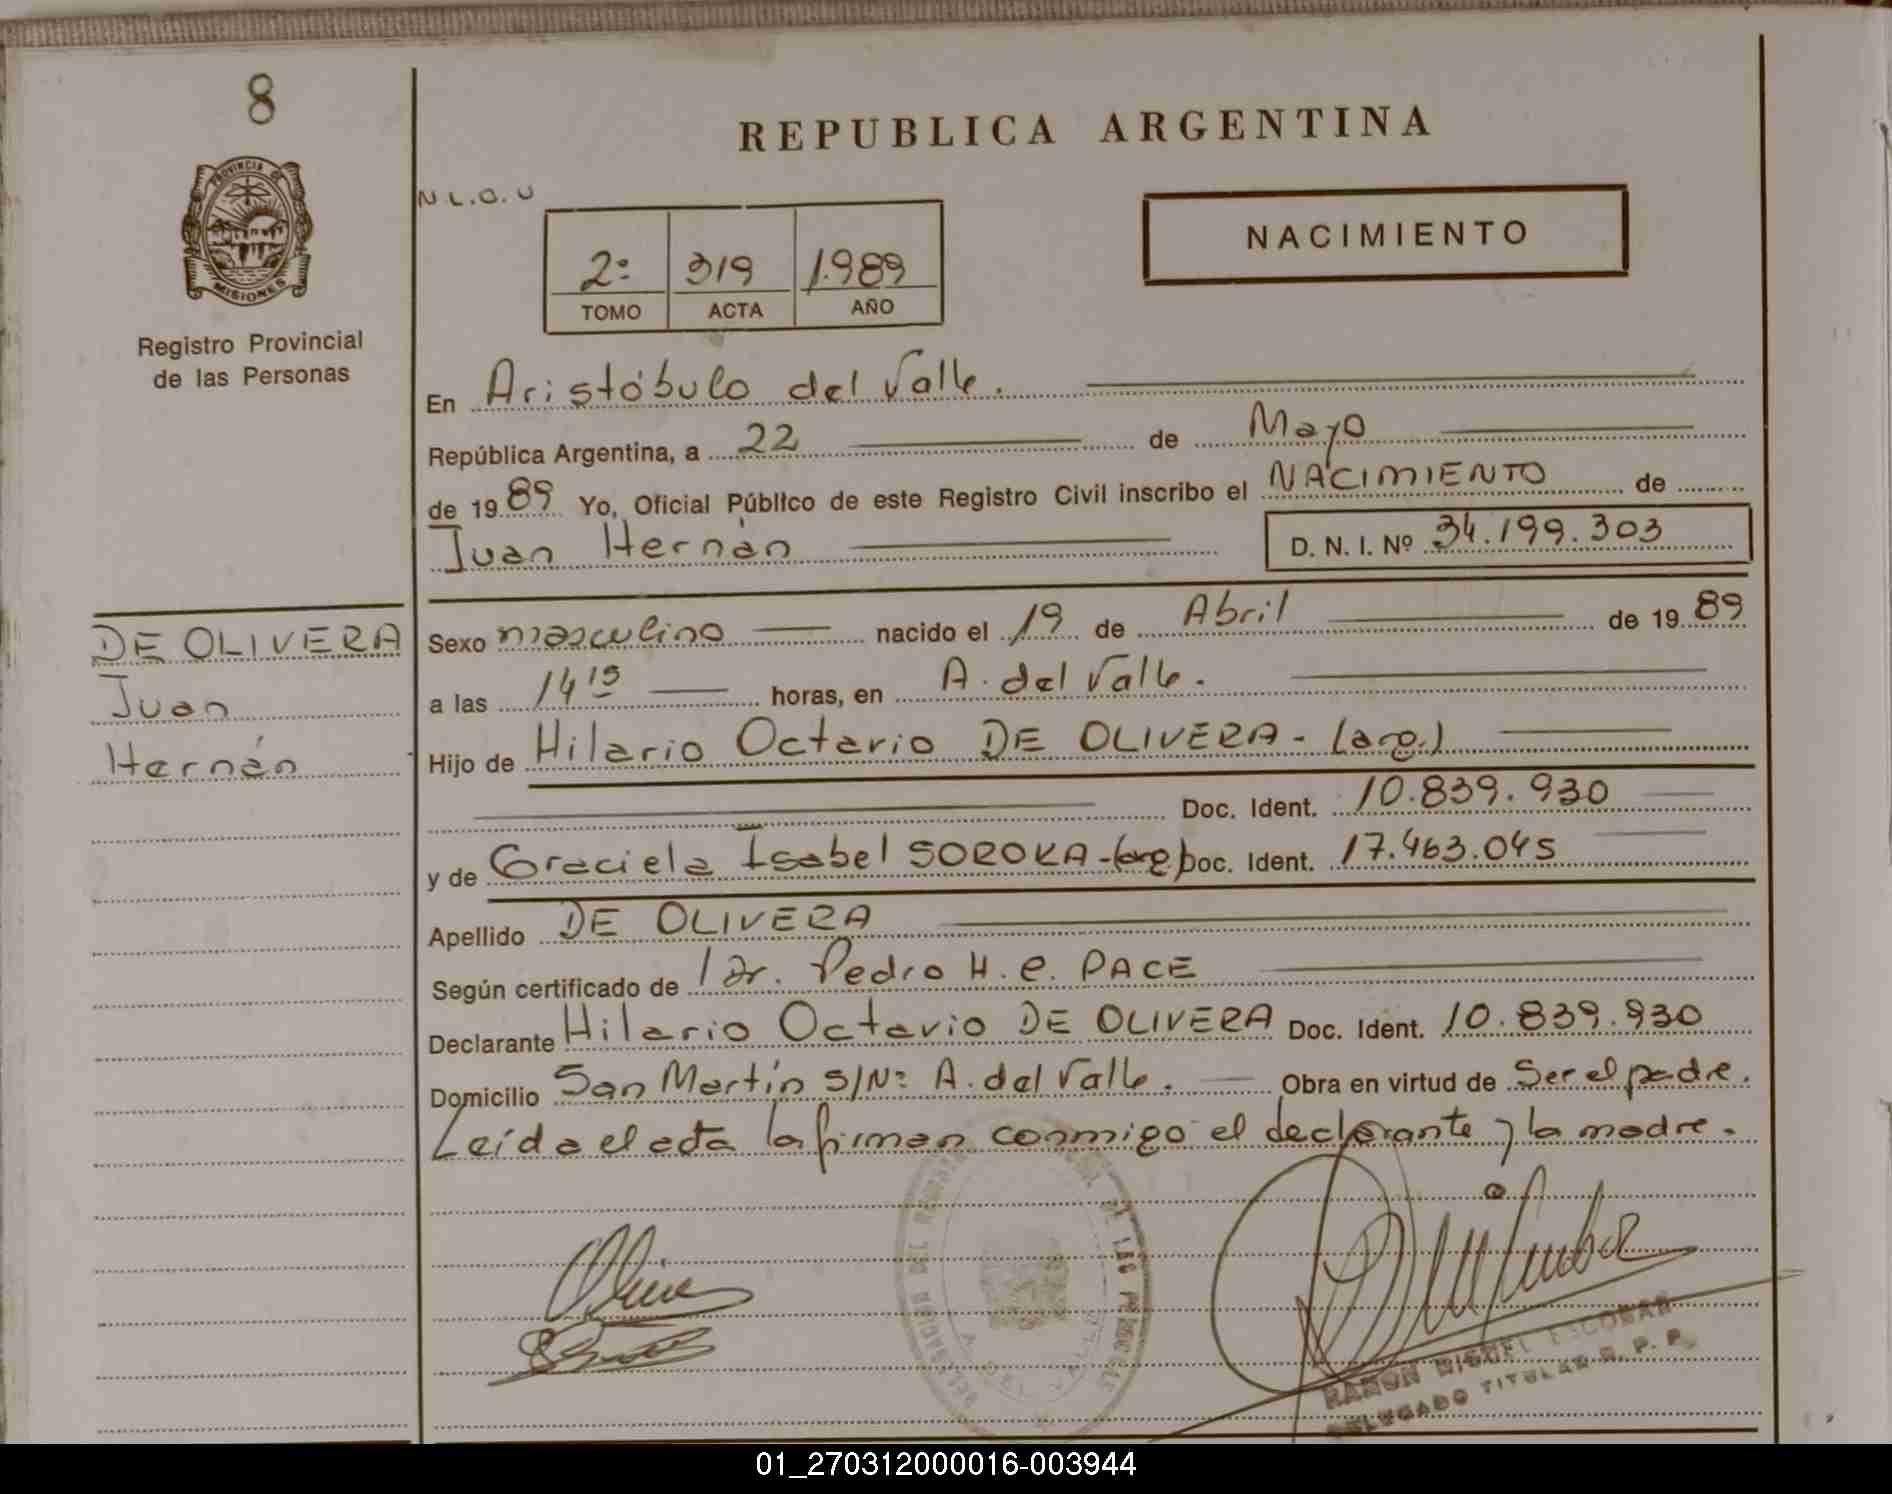 8
PROVINCIA DE
MISIONES
Registro Provincial
de las Personas
REPUBLICA ARGENTINA
N L.O.U
2º 319 1.989
TOMO ACTA AÑO
NACIMIENTO
En Aristóbulo del Valle.
República Argentina, a 22 de Mayo
de 1989 Yo, Oficial Público de este Registro Civil inscribo el NACIMIENTO de
Juan Hernán D. N. I. Nº 34.199.303
DE OLIVERA
Juan
Hernán
Sexo masculino nacido el 19 de Abril de 1989
a las 14 15 horas, en A. del Valle.
Hijo de Hilario Octavio DE OLIVERA - (arg.)
Doc. Ident. 10.839.930
y de Graciela Isabel SOROKA - (arg.) Doc. Ident. 17.463.045
Apellido DE OLIVERA
Según certificado de Dr. Pedro H. C. PACE
Declarante Hilario Octavio DE OLIVERA Doc. Ident. 10.839.930
Domicilio San Martín S/Nº A. del Valle. Obra en virtud de Ser el padre.
Leída el acta la firman conmigo el declarante y la madre.
RAMON MIGUEL ESCOBAR
DELEGADO TITULAR R. P. P.
01_270312000016-003944